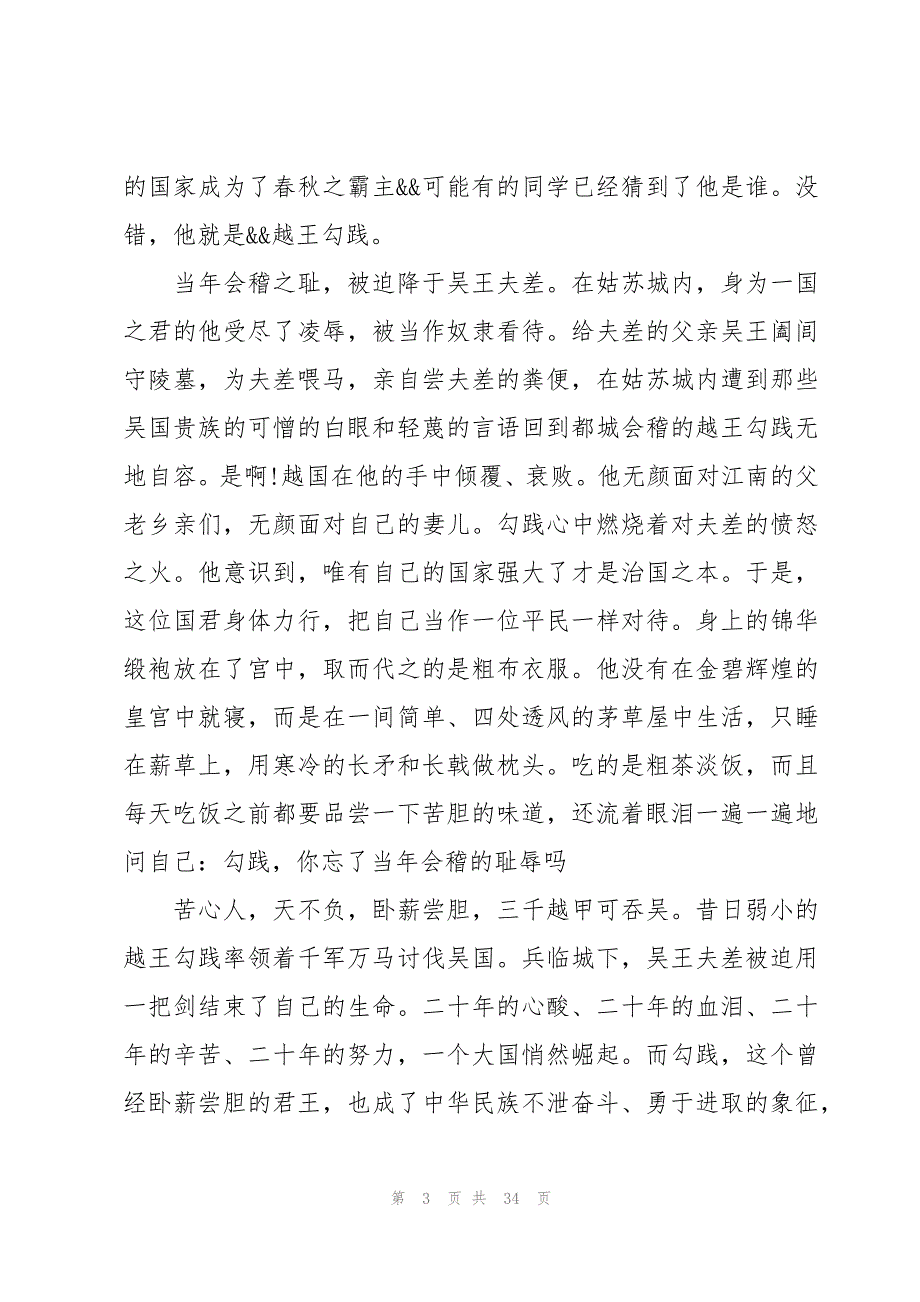 的国家成为了春秋之霸主&&可能有的同学已经猜到了他是谁。没
错，他就是&&越王勾践。
当年会稽之耻，被迫降于吴王夫差。在姑苏城内，身为一国
之君的他受尽了凌辱，被当作奴隶看待。给夫差的父亲吴王阖闾
守陵墓，为夫差喂马，亲自尝夫差的粪便，在姑苏城内遭到那些
吴国贵族的可憎的白眼和轻蔑的言语回到都城会稽的越王勾践无
地自容。是啊!越国在他的手中倾覆、衰败。他无颜面对江南的父
老乡亲们，无颜面对自己的妻儿。勾践心中燃烧着对夫差的愤怒
之火。他意识到，唯有自己的国家强大了才是治国之本。于是，
这位国君身体力行，把自己当作一位平民一样对待。身上的锦华
缎袍放在了宫中，取而代之的是粗布衣服。他没有在金碧辉煌的
皇宫中就寝，而是在一间简单、四处透风的茅草屋中生活，只睡
在薪草上，用寒冷的长矛和长戟做枕头。吃的是粗茶淡饭，而且
每天吃饭之前都要品尝一下苦胆的味道，还流着眼泪一遍一遍地
问自己：勾践，你忘了当年会稽的耻辱吗
苦心人，天不负，卧薪尝胆，三千越甲可吞吴。昔日弱小的
越王勾践率领着千军万马讨伐吴国。兵临城下，吴王夫差被迫用
一把剑结束了自己的生命。二十年的心酸、二十年的血泪、二十
年的辛苦、二十年的努力，一个大国悄然崛起。而勾践，这个曾
经卧薪尝胆的君王，也成了中华民族不泄奋斗、勇于进取的象征，
第 3 页 共 34 页